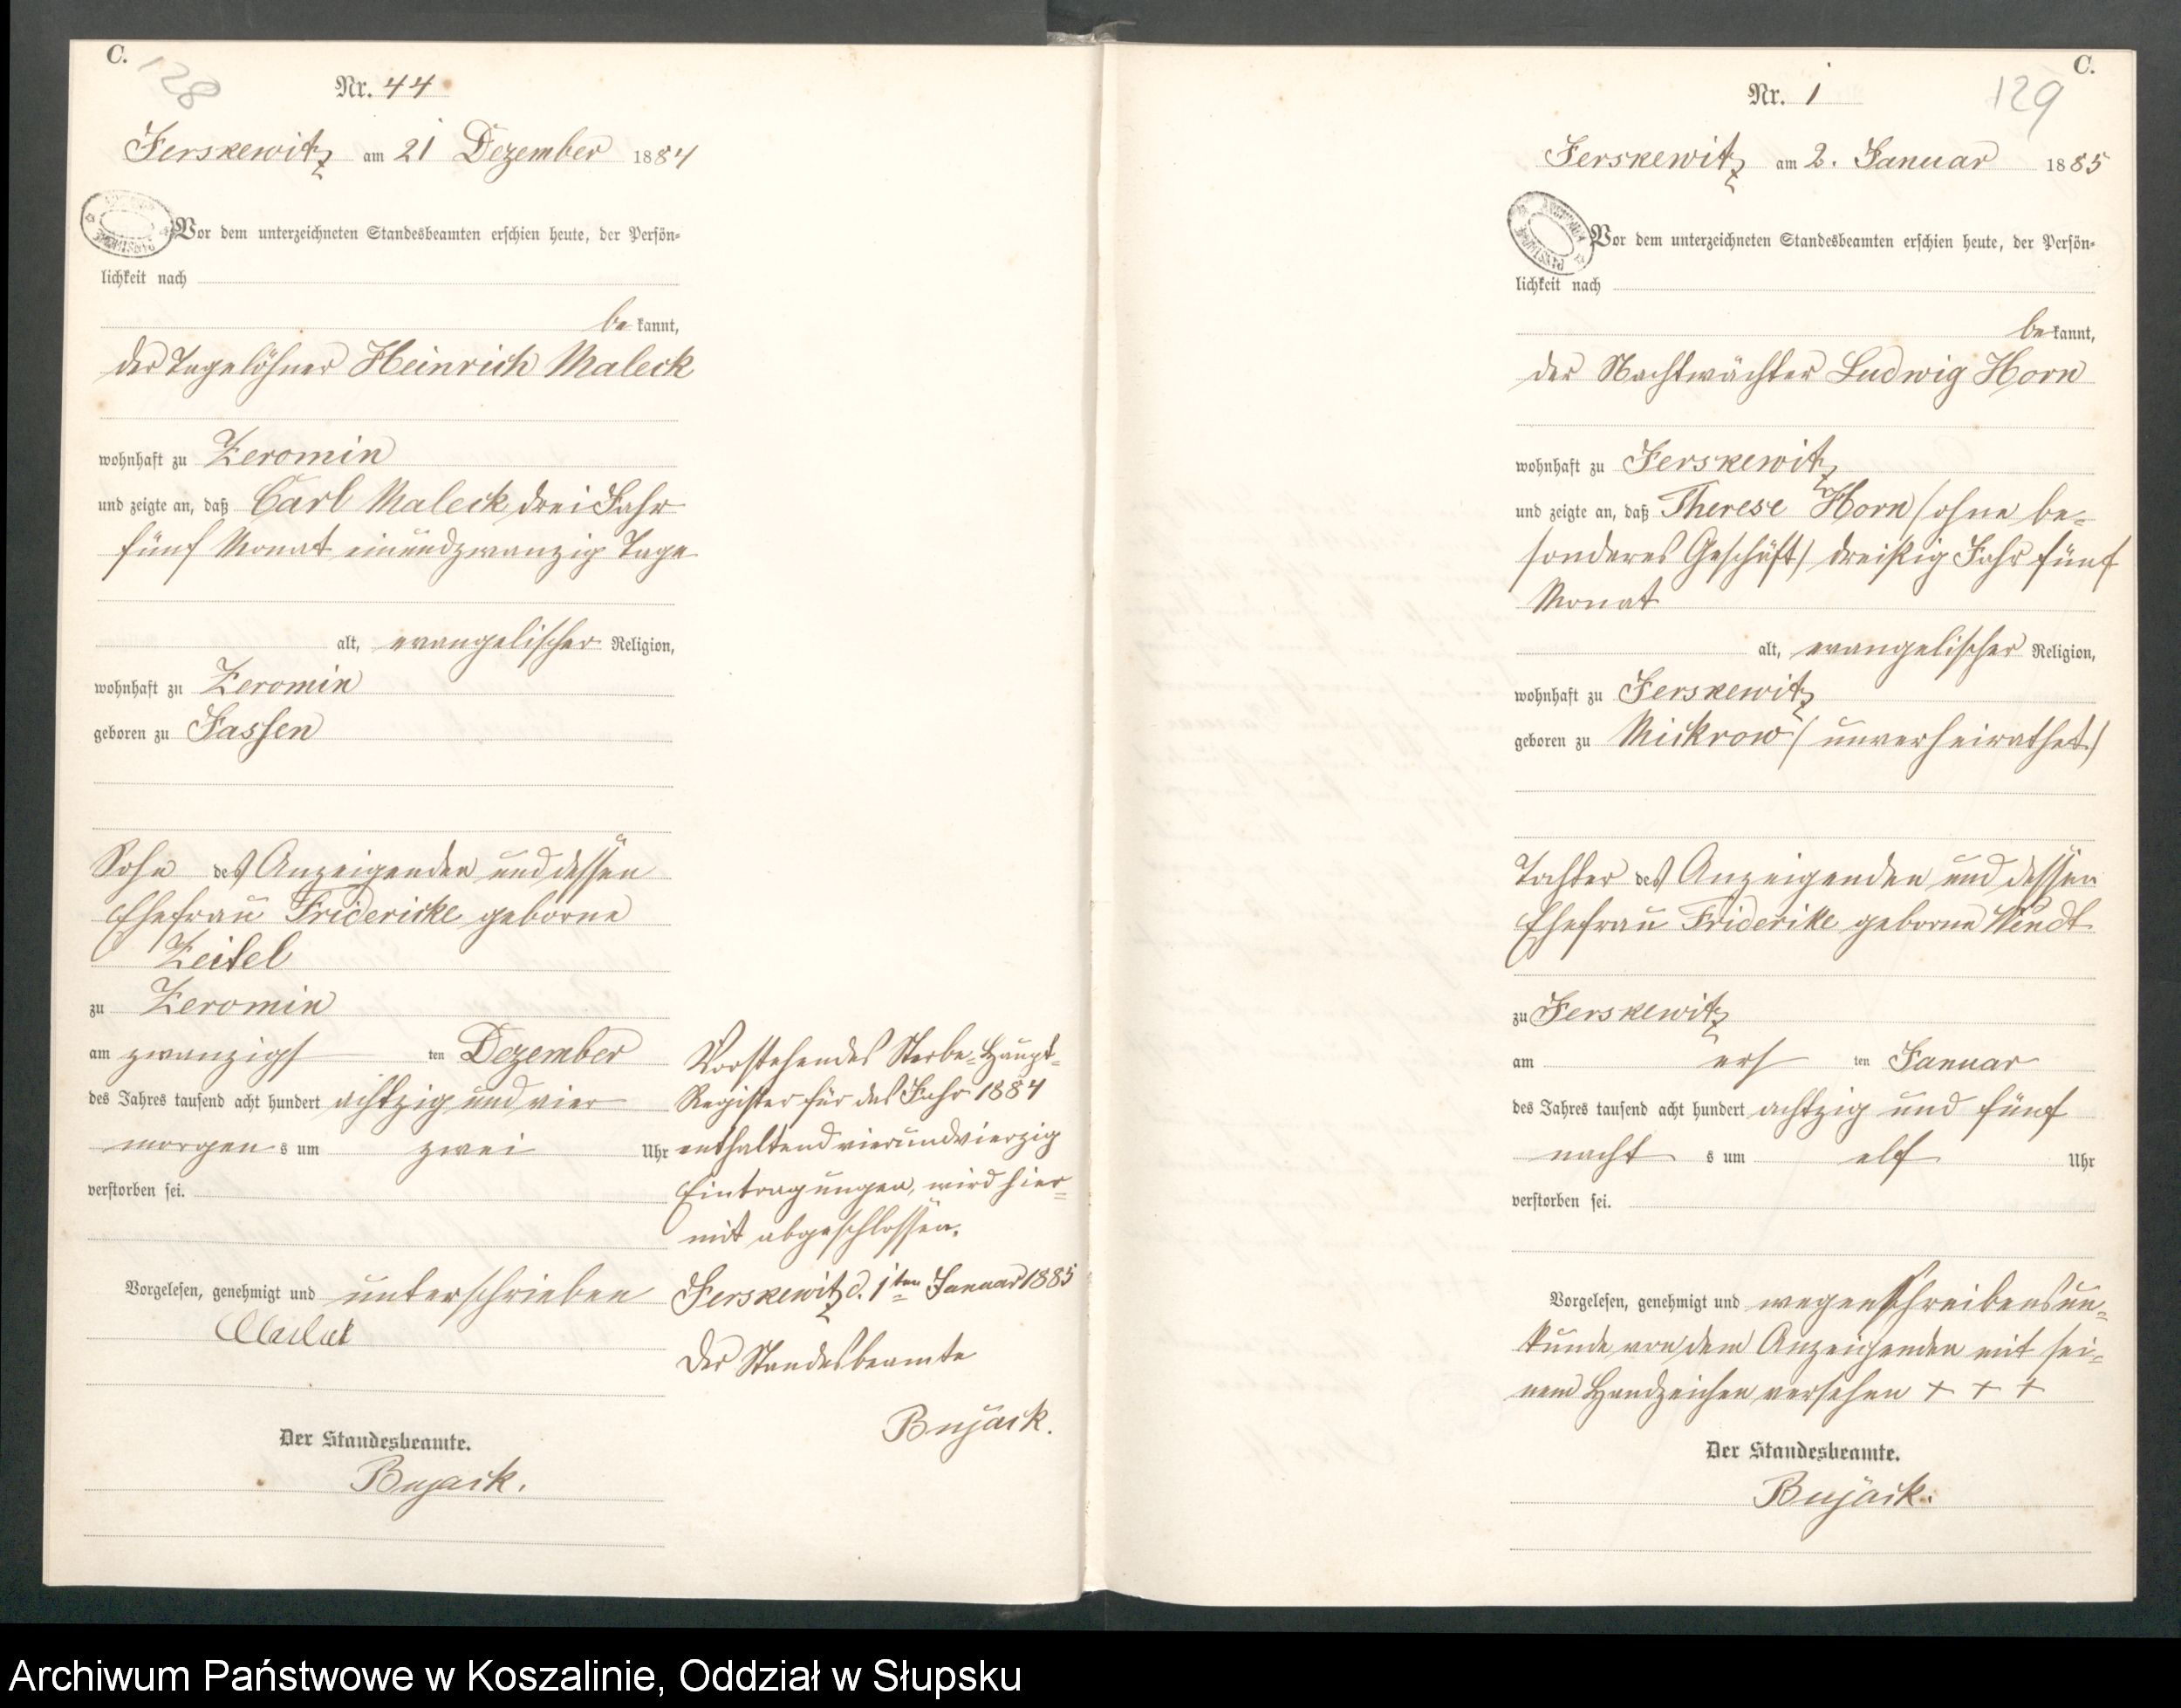 C.
128
Nr. 44
Jerskewitz am 21 Dezember 1884
Vor dem unterzeichneten Standesbeamten erschien heute, der Persön=
lichkeit nach
be kannt,
der Tagelöhner Heinrich Maleck
wohnhaft zu Zeromin
und zeigte an, daß Carl Maleck drei Jahr
fünf Monat einundzwanzig Tage
alt, evangelischer Religion,
wohnhaft zu Zeromin
geboren zu Jassen
Sohn des Anzeigenden und dessen
Ehefrau Fridericke geborne
Zeitel
zu Zeromin
am zwanzigst ten Dezember
des Jahres tausend acht hundert achtzig und vier
morgen s um zwei Uhr
verstorben sei.
Vorgelesen, genehmigt und unterschrieben
Der Standesbeamte.
Bujack.
Vorstehendes Sterbe=Haupt=
Register für das Jahr 1884
enthaltend vierundvierzig
Eintragungen, wird hier=
mit abgeschlossen.
Jerskewitz d. 1ten Januar 1885
Der Standesbeamte
Bujack.
C.
129
Nr. 1
Jerskewitz am 2. Januar 1885
Vor dem unterzeichneten Standesbeamten erschien heute, der Persön=
lichkeit nach
be kannt,
der Nachtwächter Ludwig Horn
wohnhaft zu Jerskewitz
und zeigte an, daß Therese Horn (ohne be=
sonderes Geschäft) dreißig Jahr fünf
Monat
alt, evangelischer Religion,
wohnhaft zu Jerskewitz
geboren zu Mickrow (unverheirathet)
Tochter des Anzeigenden und dessen
Ehefrau Friderike geborne Wendt
zu Jerskewitz
am erst ten Januar
des Jahres tausend acht hundert achtzig und fünf
nacht s um elf Uhr
verstorben sei.
Vorgelesen, genehmigt und wegen Schreibensun=
kunde von dem Anzeigenden mit sei=
nem Handzeichen versehen + + +
Der Standesbeamte.
Bujack.
Archiwum Państwowe w Koszalinie, Oddział w Słupsku